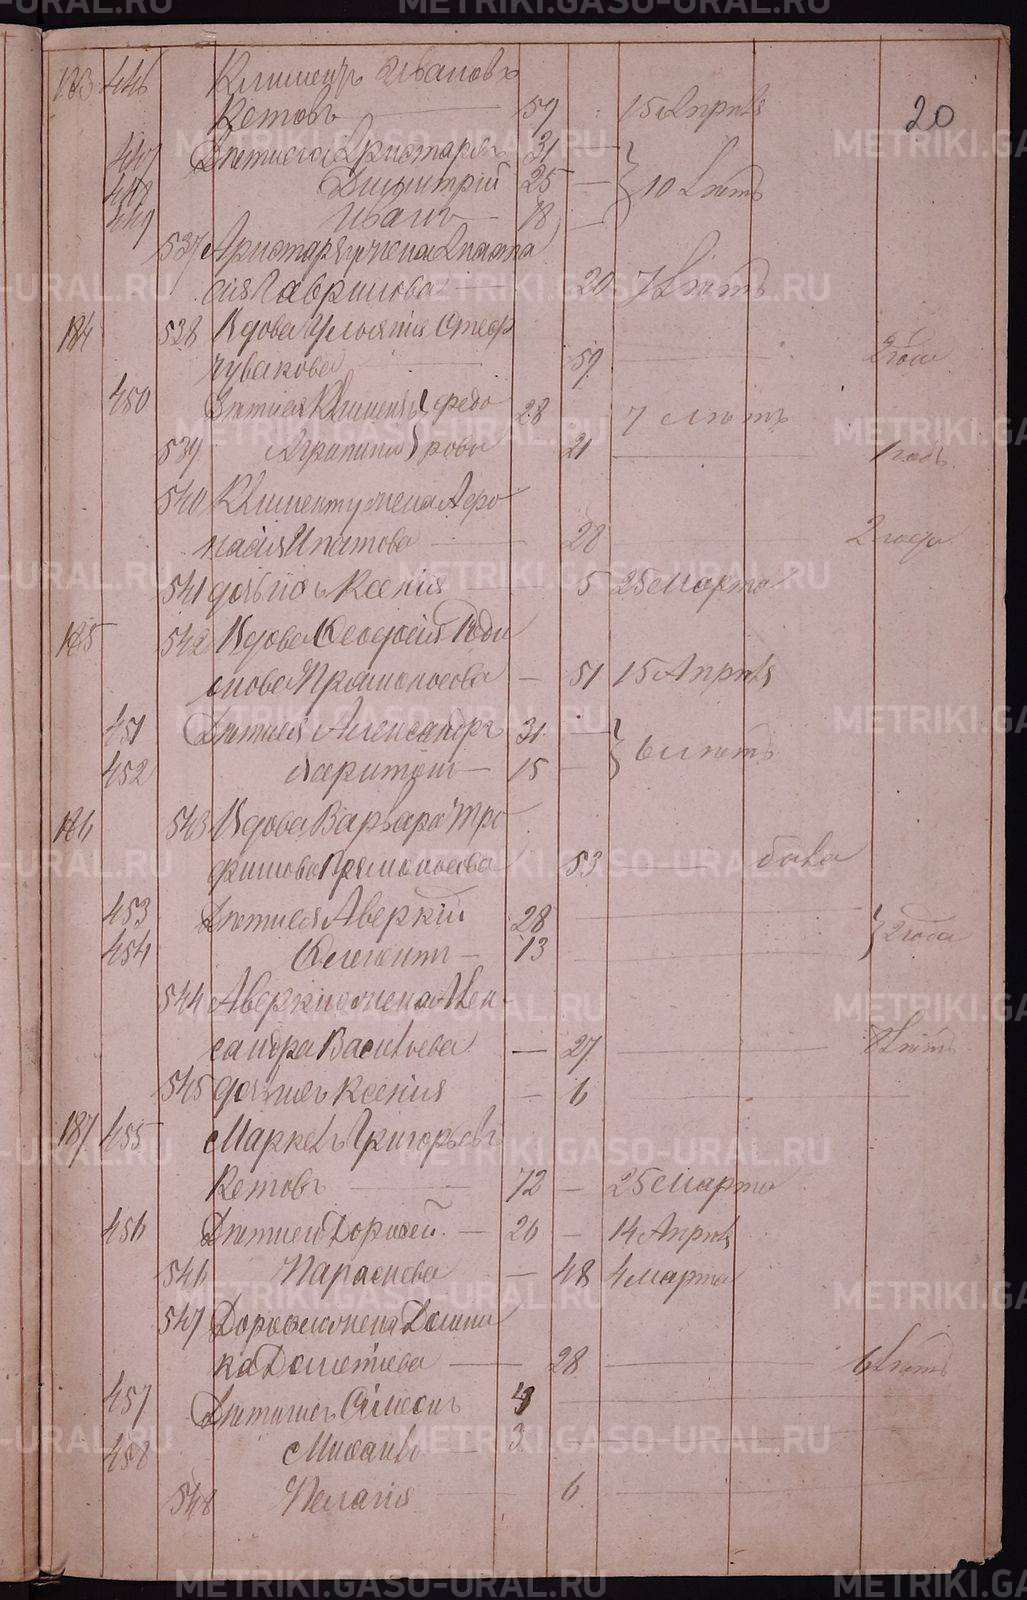 20
183 446 Климентъ Ивановъ
Кетовъ 59 15 Апрѣля
447 Дѣти его Аристархъ 31
448 Димитрій 25 10 Лѣтъ
449 Иванъ 18
537 Аристарху жена Анаста
сія Гаврилова 20 7 Лѣтъ
184 538 Вдова Улья Стеф
Чувакова 59 2 года
450 Дѣти ея Климентъ Федо 28 7 лѣтъ
539 Агрипина рова 21 1 годъ
540 Клименту жена Афо
насія Ипатова 28 2 года
541 дочь ихъ Ксенія 5 25 Марта
185 542 Вдова Феодосія Роди
онова Прямоносова 51 15 Апрѣля
451 Дѣти ея Александръ 31
452 Харитонъ 15 6 лѣтъ
186 543 Вдова Варвара Тро
фимова Прямоносова 53 была
453 Дѣти ея Аверкій 28
454 Климентъ 13 2 года
544 Аверкію жена Алек-
сандра Васильева 27 8 Лѣтъ
545 дочь ихъ Ксенія 6
187 455 Маркелъ Григорьевъ
Кетовъ 72 25 Марта
456 Дѣти его Дорофей 26 14 Апрѣля
546 Параскева 48 4 Марта
547 Дорофею жена Домни
ка Дометіева 28 6 Лѣтъ
457 Дѣти ихъ Симеонъ
458 Михаилъ 3
548 Пелагія 6
METRIKI.GASO-URAL.RU